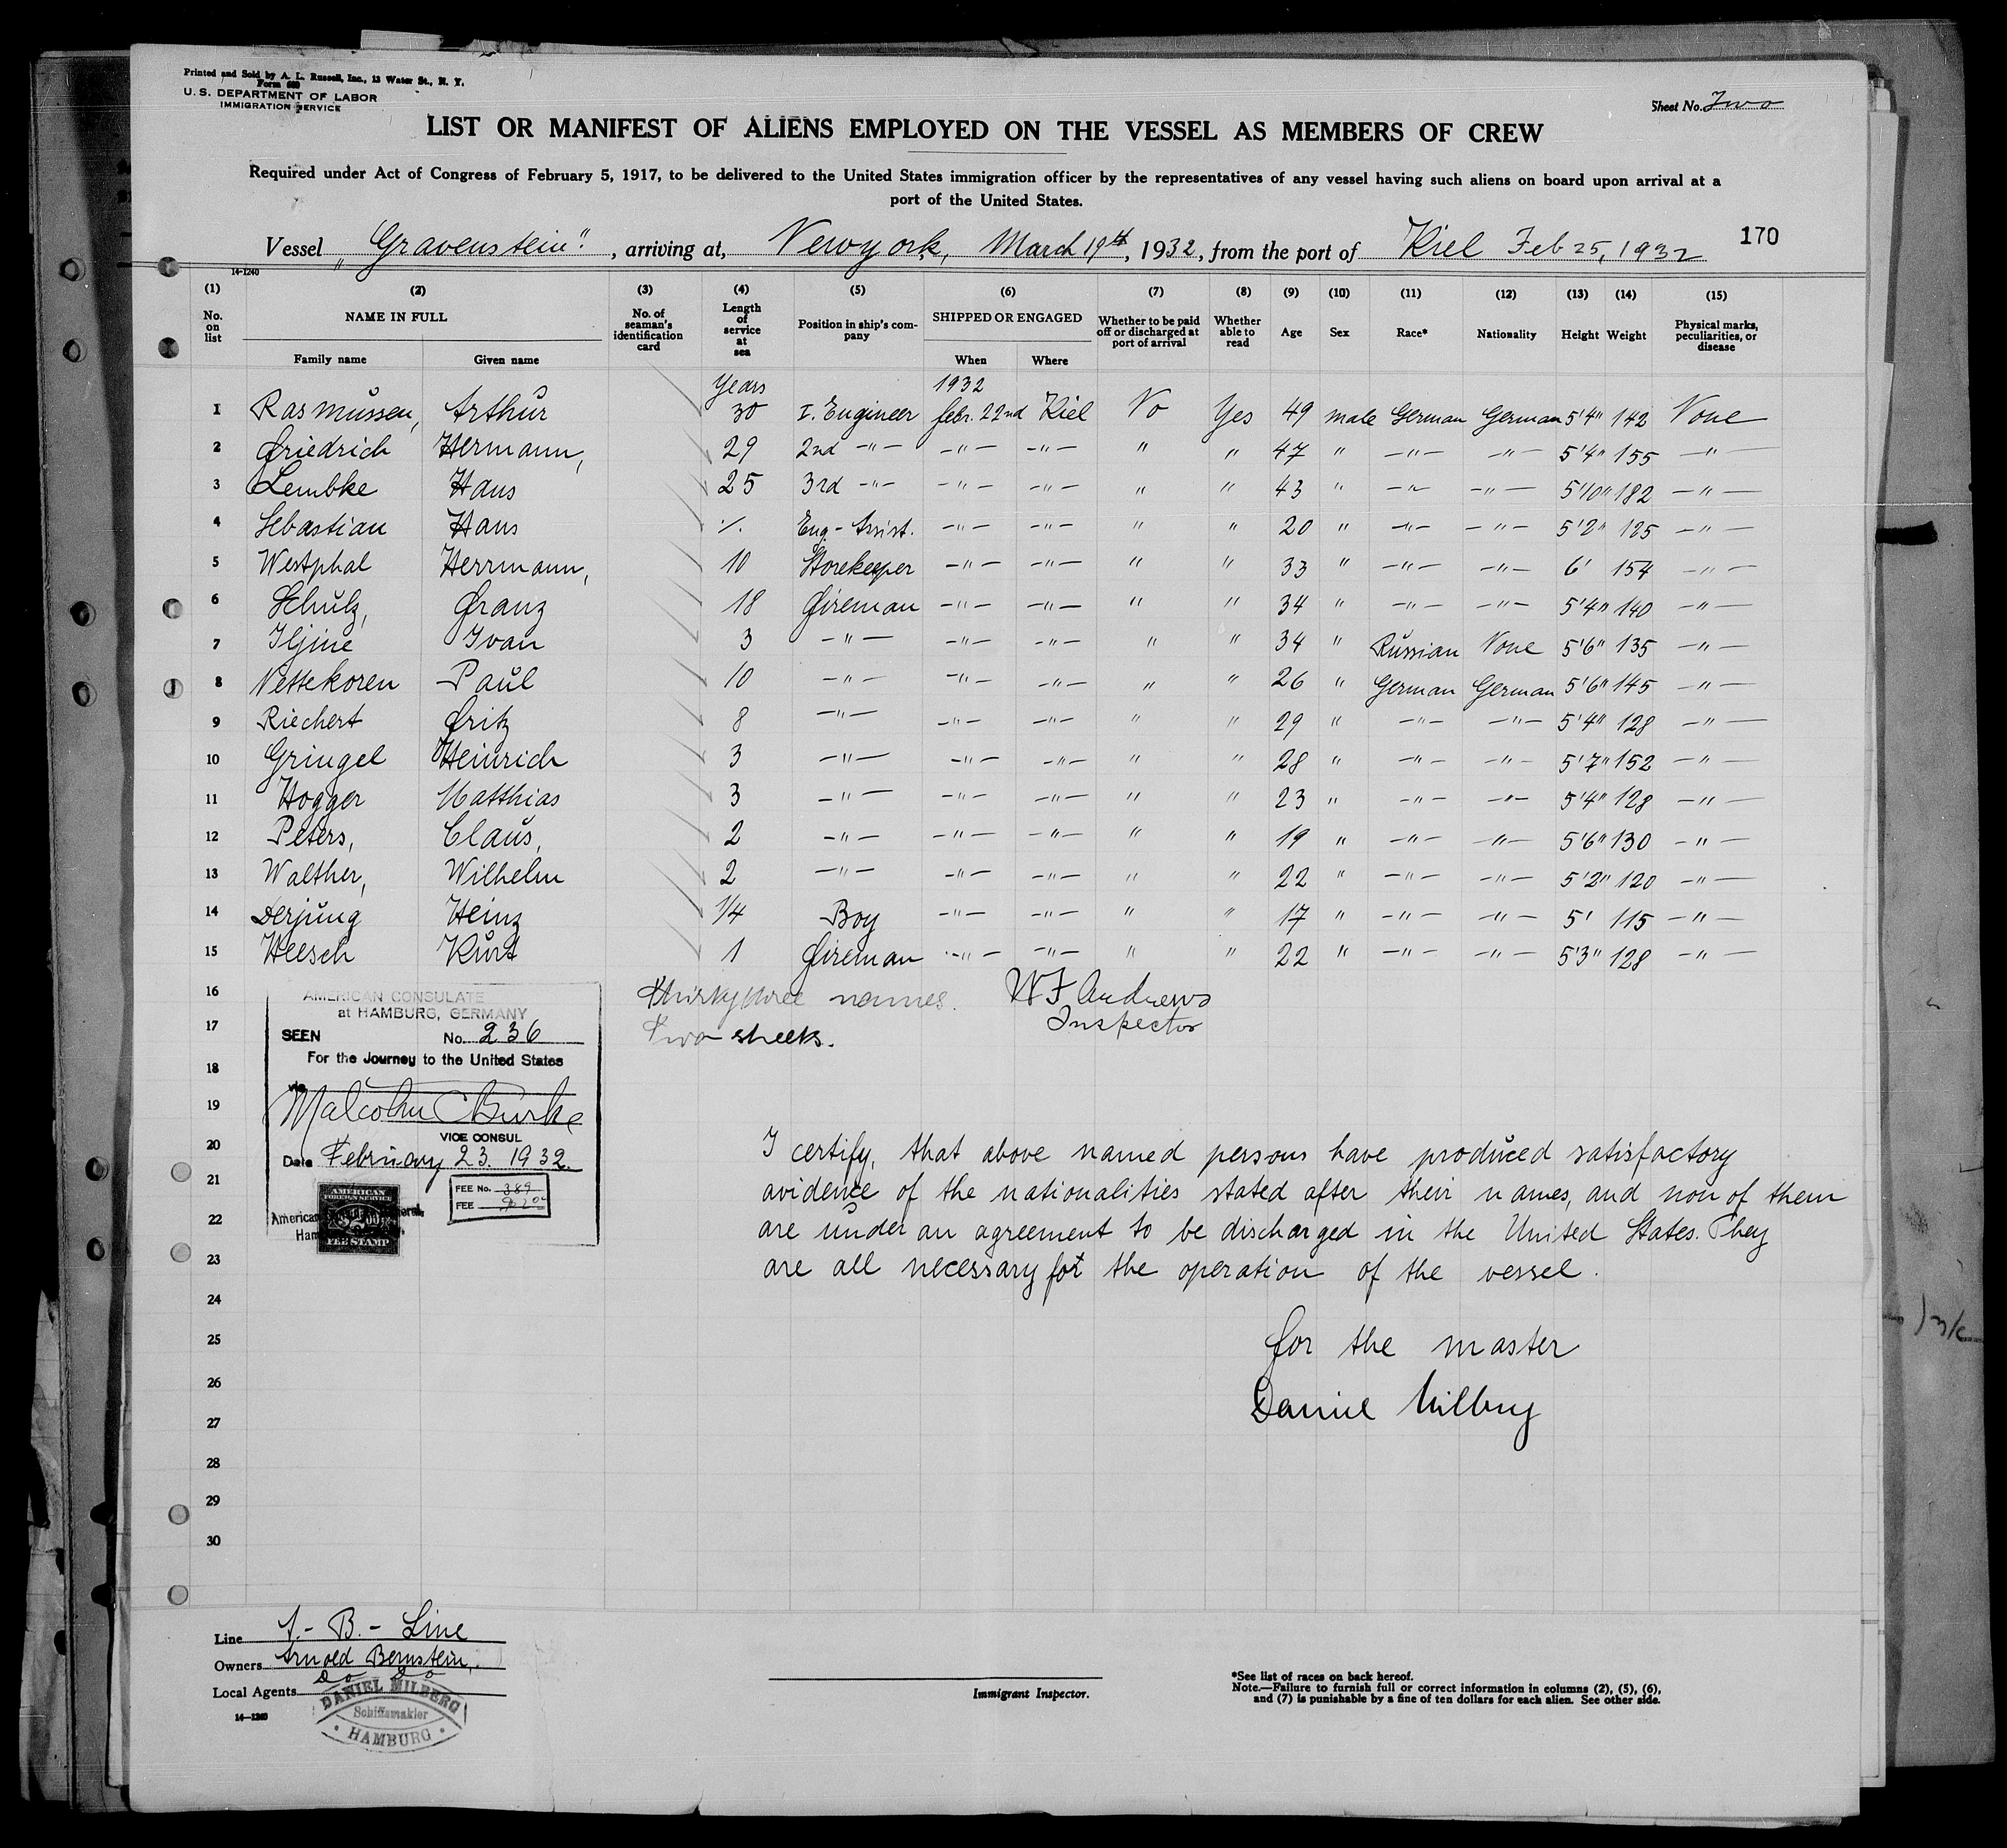 Printed and Sold by A. L. Russell, Inc., 13 Water St., N. Y.
Form 680
U. S. DEPARTMENT OF LABOR
IMMIGRATION SERVICE
Sheet No. Two
LIST OR MANIFEST OF ALIENS EMPLOYED ON THE VESSEL AS MEMBERS OF CREW
Required under Act of Congress of February 5, 1917, to be delivered to the United States immigration officer by the representatives of any vessel having such aliens on board upon arrival at a
port of the United States.
170
Vessel „Gravenstein", arriving at, Newyork, March 19th, 1932, from the port of Kiel Feb 25, 1932
14-1240
(1) (2) (3) (4) (5) (6) (7) (8) (9) (10) (11) (12) (13) (14) (15)
No. on list NAME IN FULL Family name Given name No. of seaman's identification card Length of service at sea Position in ship's company SHIPPED OR ENGAGED When Where Whether to be paid off or discharged at port of arrival Whether able to read Age Sex Race* Nationality Height Weight Physical marks, peculiarities, or disease
years 1932
1 Rasmussen, Arthur 30 I. Engineer febr. 22nd Kiel No Yes 49 male German German 5'4" 142 None
2 Friedrich Hermann, 29 2nd -"- -"- -"- " " 47 " -"- -"- 5'4" 155 -"-
3 Lembke Hans 25 3rd -"- -"- -"- " " 43 " -"- -"- 5'10" 182 -"-
4 Sebastian Hans ./. Eng-Assist. -"- -"- " " 20 " -"- -"- 5'2" 125 -"-
5 Westphal Herrmann, 10 Storekeeper -"- -"- " " 33 " -"- -"- 6' 154 -"-
6 Schulz, Franz 18 Fireman -"- -"- " " 34 " -"- -"- 5'4" 140 -"-
7 Iljine Ivan 3 -"- -"- -"- " " 34 " Russian None 5'6" 135 -"-
8 Nettekoren Paul 10 -"- -"- -"- " " 26 " German German 5'6" 145 -"-
9 Riechert Fritz 8 -"- -"- -"- " " 29 " -"- -"- 5'4" 128 -"-
10 Gringel Heinrich 3 -"- -"- -"- " " 28 " -"- -"- 5'7" 152 -"-
11 Hogger Matthias 3 -"- -"- -"- " " 23 " -"- -"- 5'4" 128 -"-
12 Peters, Claus, 2 -"- -"- -"- " " 19 " -"- -"- 5'6" 130 -"-
13 Walther, Wilhelm 2 -"- -"- -"- " " 22 " -"- -"- 5'2" 120 -"-
14 Derjung Heinz 1/4 Boy -"- -"- " " 17 " -"- -"- 5' 115 -"-
15 Heesch Kurt 1 Fireman -"- -"- " " 22 " -"- -"- 5'3" 128 -"-
16
17
18
19
20
21
22
23
24
25
26
27
28
29
30
thirty three names. W F Andrews
Two sheets. Inspector
AMERICAN CONSULATE
at HAMBURG, GERMANY
SEEN No. 236
For the Journey to the United States
via
Malcolm C Burke
VICE CONSUL
Date February 23. 1932.
AMERICAN
FOREIGN SERVICE
FEE STAMP
FEE No. 389
FEE
I certify, that above named persons have produced satisfactory
avidence of the nationalities stated after their names, and non of them
are under an agreement to be discharged in the United States. They
are all necessary for the operation of the vessel.
for the master
Daniel Milberg
Line A.- B.- Line
Owners Arnold Bernstein,
Local Agents Do Do
14-1240
DANIEL MILBERG
Schiffsmakler
HAMBURG
Immigrant Inspector.
*See list of races on back hereof.
Note.—Failure to furnish full or correct information in columns (2), (5), (6),
and (7) is punishable by a fine of ten dollars for each alien. See other side.